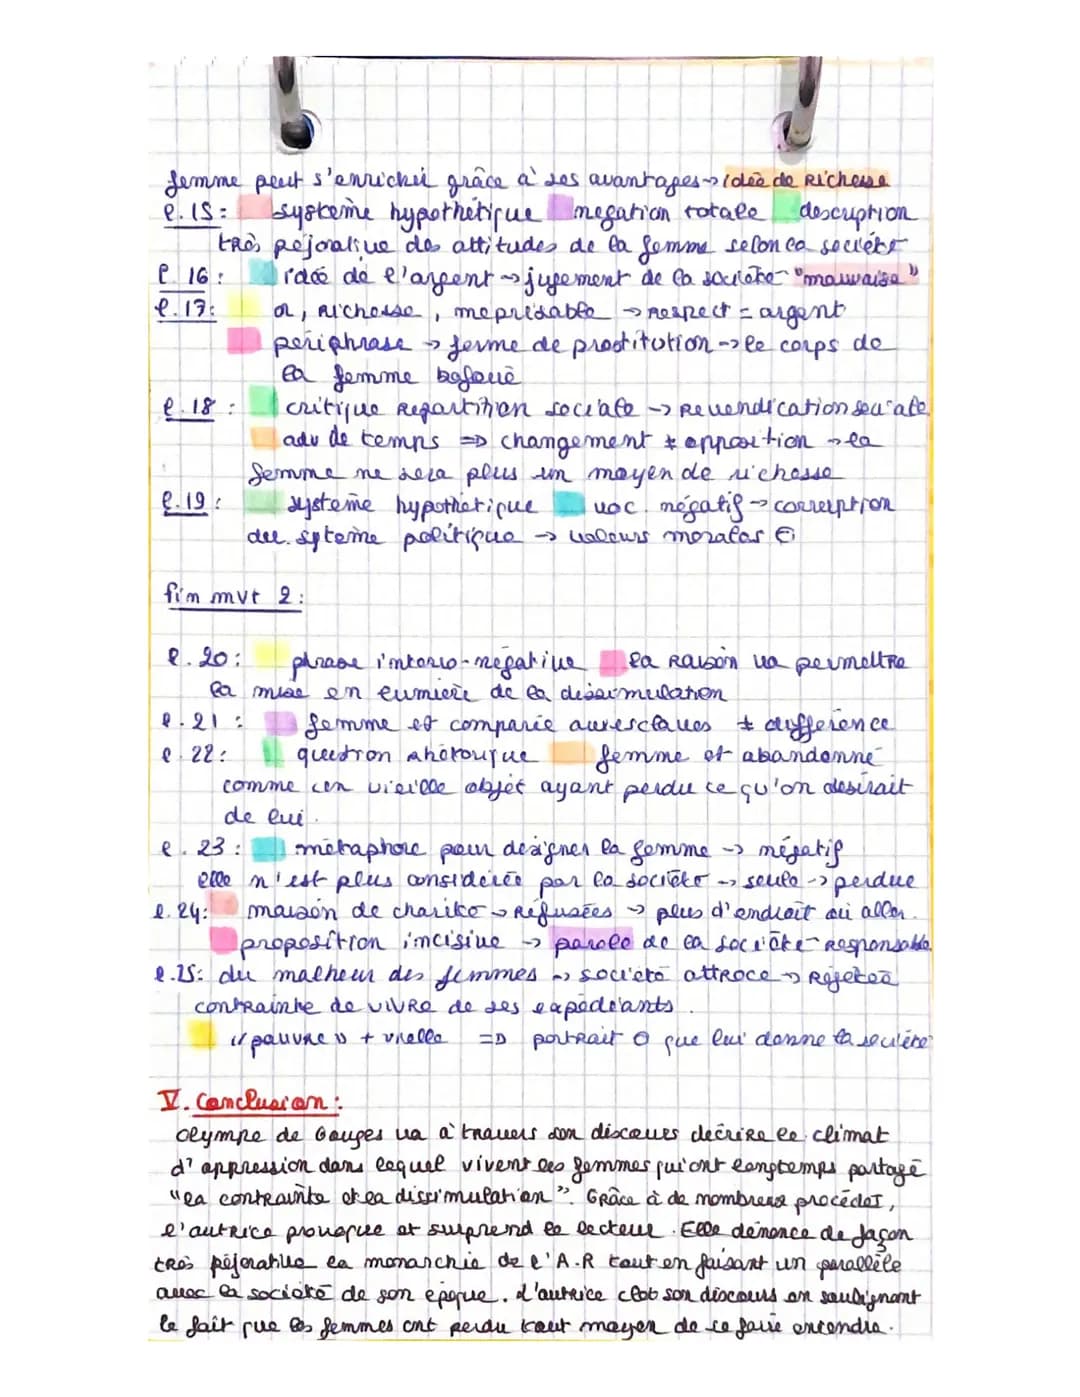 femme peut s'enrichir grâce à ses avantages → idée de Richesse
l. 15 : système hypothétique négation totale description
très péjorative des attitudes de la femme selon la société
l. 16 : idée de l'argent → jugement de la société "mauvaise"
l. 17 : or, Richesse, méprisable → Respect = argent
périphrase → forme de prostitution → le corps de
la femme bafoué
l. 18 : critique Repartition sociale → Revendication sociale
adv de temps => changement ≠ opposition → la
femme ne sera plus un moyen de richesse
l. 19 : système hypothétique voc. négatif → corruption
du système politique → valeurs morales ⊖
fin mvt 2 :
l. 20 : phrase interro-négative la Raison va permettre
la mise en lumière de la dissimulation
l. 21 : femme est comparée aux esclaves ≠ différence
l. 22 : question rhétorique femme est abandonné
comme un vieille objet ayant perdu ce qu'on desirait
de lui.
l. 23 : métaphore pour designer la femme → négatif
elle n'est plus considérée par la société → seule → perdue
l. 24 : maison de charité → Réfusées → plus d'endroit où aller.
proposition incisive → parole de la société Responsable
l. 25 : du malheur des femmes → société attroce → Rejetée
contrainte de vivre de ses expédiants.
"pauvre" + vielle => portrait ⊖ que lui donne la société
V. Conclusion :
Olympe de Gouges va à travers son discours décrire le climat
d'oppression dans lequel vivent les femmes qui ont longtemps partagé
"la contrainte et la dissimulation". Grâce à de nombreux procédés,
l'autrice provoque et surprend le lecteur. Elle dénonce de façon
très péjorative la monarchie de l'A.R tout en faisant un parallèle
avec la société de son époque. L'autrice clot son discours en soulignant
le fait que les femmes ont perdu tout moyen de se faire entendre.